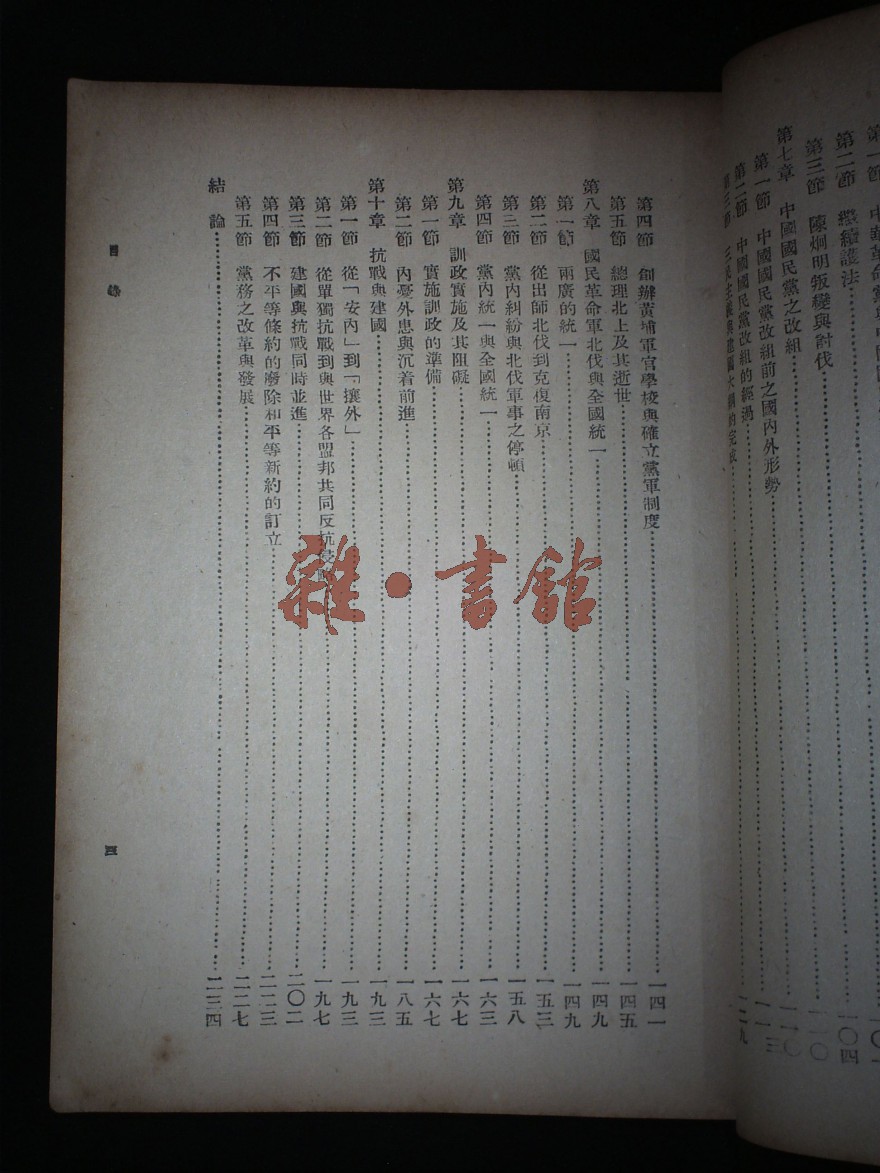 第二節 繼續護法 一〇四
第三節 陳烱明叛變與討伐 一一〇
第七章 中國國民黨之改組 一一〇
第一節 中國國民黨改組前之國內外形勢 一一三
第二節 中國國民黨改組的經過
第三節 三民主義與建國大綱的完成 一二九
第四節 創辦黃埔軍官學校與確立黨軍制度 一四一
第五節 總理北上及其逝世 一四五
第八章 國民革命軍北伐與全國統一 一四九
第一節 兩廣的統一 一四九
第二節 從出師北伐到克復南京 一五三
第三節 黨內糾紛與北伐軍事之停頓 一五八
第四節 黨內統一與全國統一 一六三
第九章 訓政實施及其阻礙 一六七
第一節 實施訓政的準備 一六七
第二節 內憂外患與沉着前進 一八五
第十章 抗戰與建國 一九三
第一節 從「安內」到「攘外」 一九三
第二節 從單獨抗戰到與世界各盟邦共同反抗侵略 一九七
第三節 建國與抗戰同時並進 二〇二
第四節 不平等條約的廢除和平等新約的訂立 二二三
第五節 黨務之改革與發展 二二七
結論 二三四
目錄
四
雜·書館